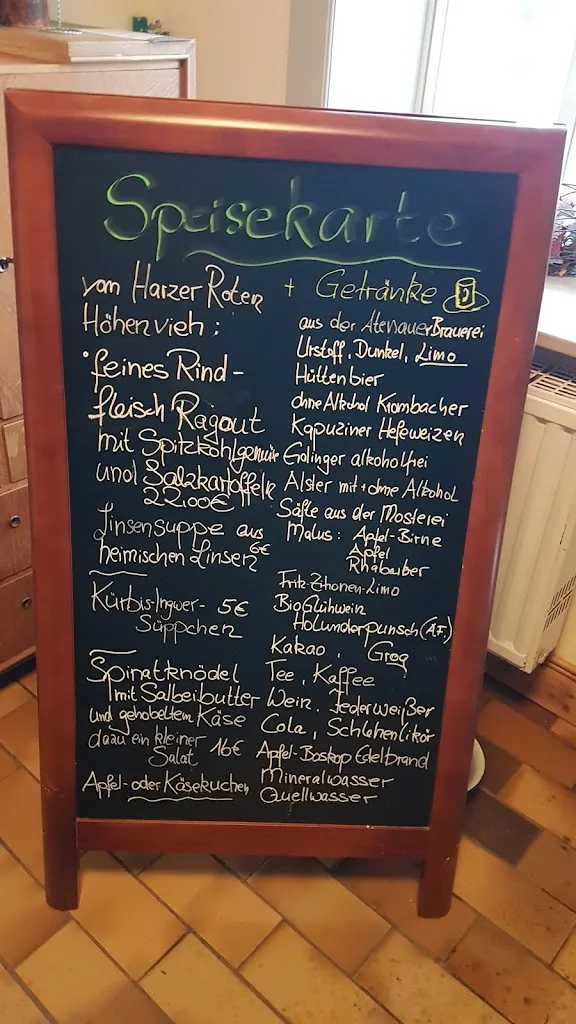 Speisekarte
vom Harzer Roten
Höhenvieh :
feines Rind-
fleisch Ragout
mit Spitzkohlgemüse
und Salzkartoffeln
22,00€
Linsensuppe aus
heimischen Linsen 6€
Kürbis-Ingwer- 5€
Süppchen
Spinatknödel
mit Salbeibutter
und gehobeltem Käse
dazu ein kleiner
Salat 16€
Apfel- oder Käsekuchen
+ Getränke
aus der Altenauer Brauerei
Urstoff, Dunkel, Limo
Hüttenbier
ohne Alkohol Krombacher
Kapuziner Hefeweizen
alkoholfrei
Alster mit + ohne Alkohol
Säfte aus der Mosterei
Malus : Apfel-Birne
Apfel
Rhabarber
Fritz-Zitronen-Limo
Bio Glühwein
Holunderpunsch (A.F.)
Kakao, Grog
Tee, Kaffee
Wein, Federweißer
Cola, Schlehenlikör
Apfel-Boskop Edelbrand
Mineralwasser
Quellwasser